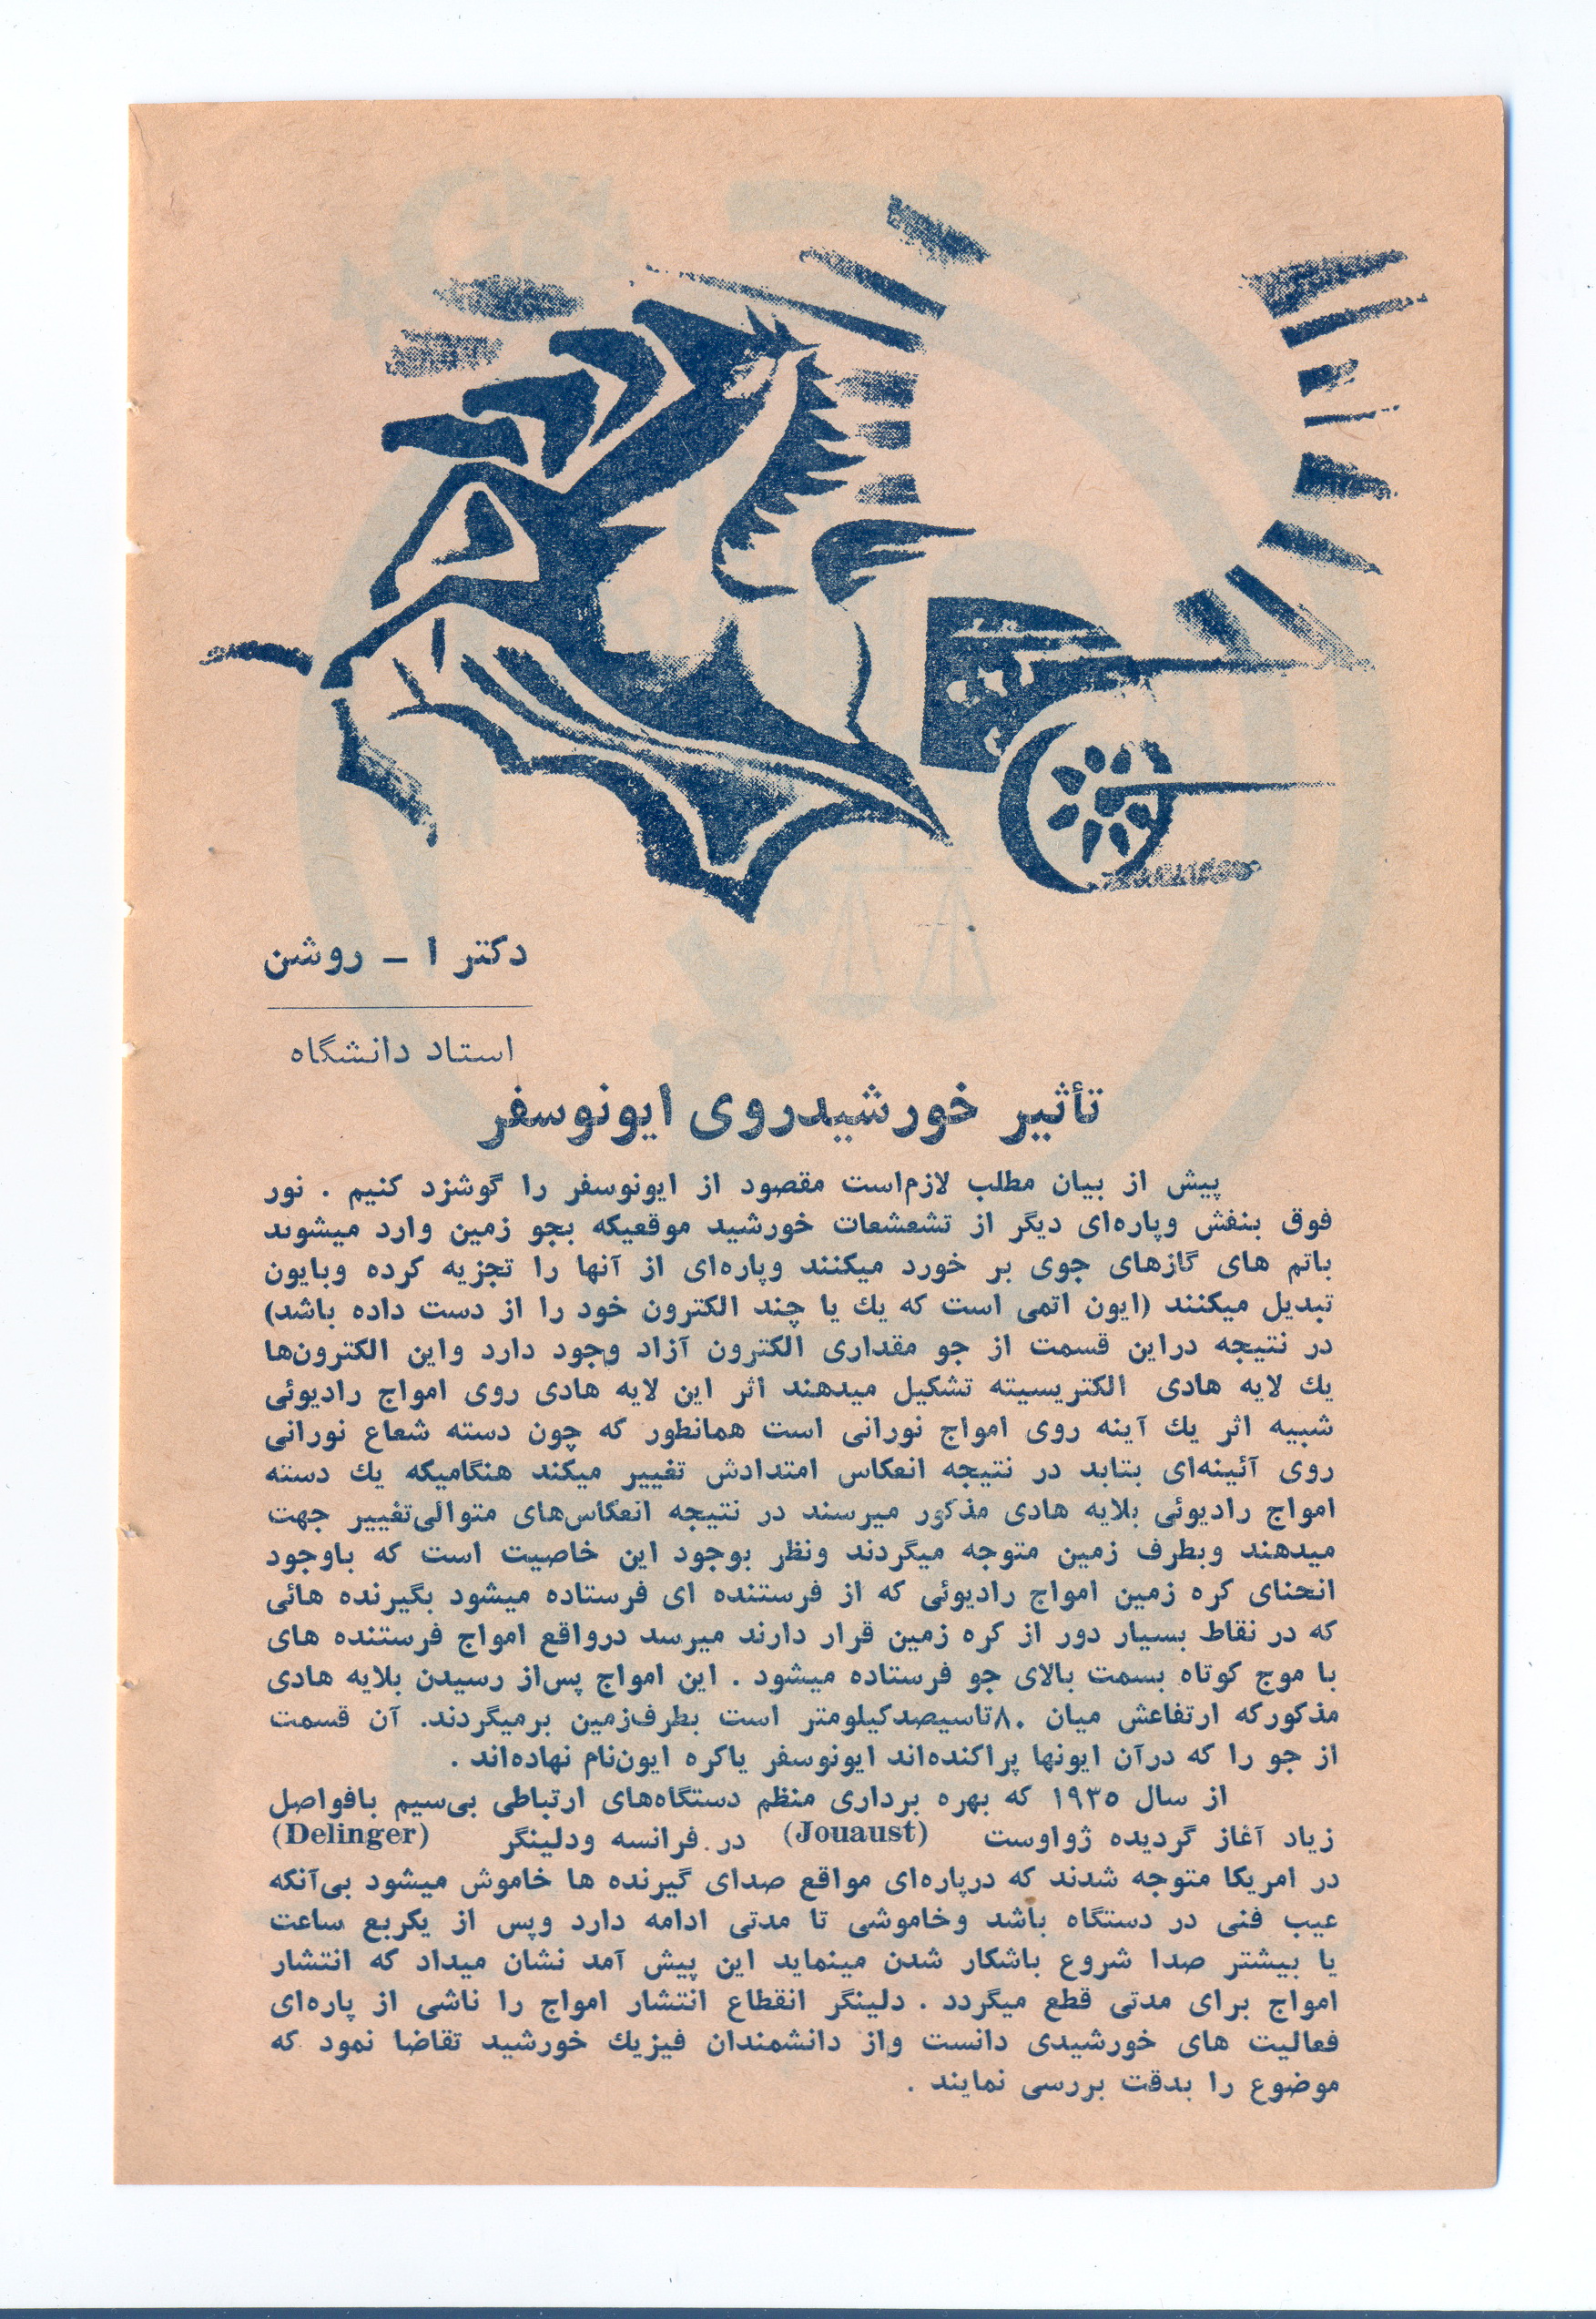 دکتر ا – روشن
استاد دانشگاه
تأثیر خورشیدروی ایونوسفر
پیش از بیان مطلب لازم‌است مقصود از ایونوسفر را گوشزد کنیم . نور
فوق بنفش وپاره‌ای دیگر از تشعشعات خورشید موقعیکه بجو زمین وارد میشوند
باتم های گازهای جوی بر خورد میکنند وپاره‌ای از آنها را تجزیه کرده وبایون
تبدیل میکنند (ایون اتمی است که یك یا چند الکترون خود را از دست داده باشد)
در نتیجه دراین قسمت از جو مقداری الکترون آزاد وجود دارد واین الکترون‌ها
یك لایه هادی الکتریسیته تشکیل میدهند اثر این لایه هادی روی امواج رادیوئی
شبیه اثر یك آینه روی امواج نورانی است همانطور که چون دسته شعاع نورانی
روی آئینه‌ای بتابد در نتیجه انعکاس امتدادش تغییر میکند هنگامیکه یك دسته
امواج رادیوئی بلایه هادی مذکور میرسند در نتیجه انعکاس‌های متوالی‌تغییر جهت
میدهند وبطرف زمین متوجه میگردند ونظر بوجود این خاصیت است که باوجود
انحنای کره زمین امواج رادیوئی که از فرستنده ای فرستاده میشود بگیرنده هائی
که در نقاط بسیار دور از کره زمین قرار دارند میرسد درواقع امواج فرستنده های
با موج کوتاه بسمت بالای جو فرستاده میشود . این امواج پس‌از رسیدن بلایه هادی
مذکورکه ارتفاعش میان ۸۰تاسیصدکیلومتر است بطرف‌زمین برمیگردند. آن قسمت
از جو را که درآن ایونها پراکنده‌اند ایونوسفر یاکره ایون‌نام نهاده‌اند .
از سال ۱۹۳۵ که بهره برداری منظم دستگاه‌های ارتباطی بی‌سیم بافواصل
زیاد آغاز گردیده ژواوست (Jouaust) در فرانسه ودلینگر (Delinger)
در امریکا متوجه شدند که درپاره‌ای مواقع صدای گیرنده ها خاموش میشود بی‌آنکه
عیب فنی در دستگاه باشد وخاموشی تا مدتی ادامه دارد وپس از یکربع ساعت
یا بیشتر صدا شروع باشکار شدن مینماید این پیش آمد نشان میداد که انتشار
امواج برای مدتی قطع میگردد . دلینگر انقطاع انتشار امواج را ناشی از پاره‌ای
فعالیت های خورشیدی دانست واز دانشمندان فیزیك خورشید تقاضا نمود که
موضوع را بدقت بررسی نمایند .